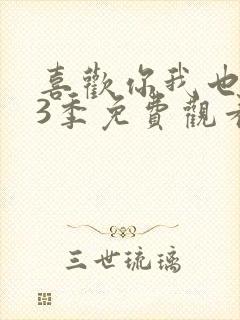 喜歡你我也
3季免費觀
三世琉璃